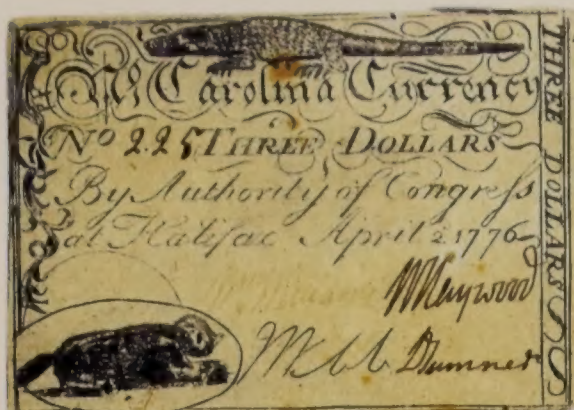 No Carolina Currency
No 225 THREE DOLLARS
By Authority of Congress
at Halifax April 2 1776
W Haywood
Webb Sumner
THREE DOLLARS